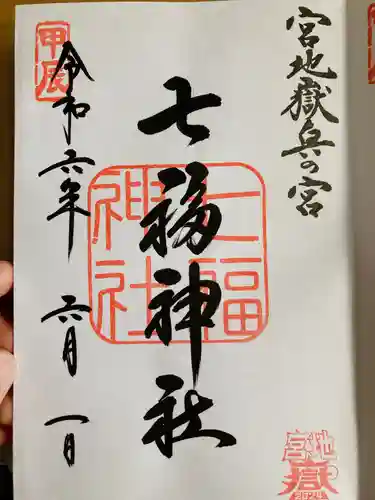 宮地嶽兵の宮
七福神社
七福
神社
令和六年六月一日
甲辰
宮地
嶽
2024